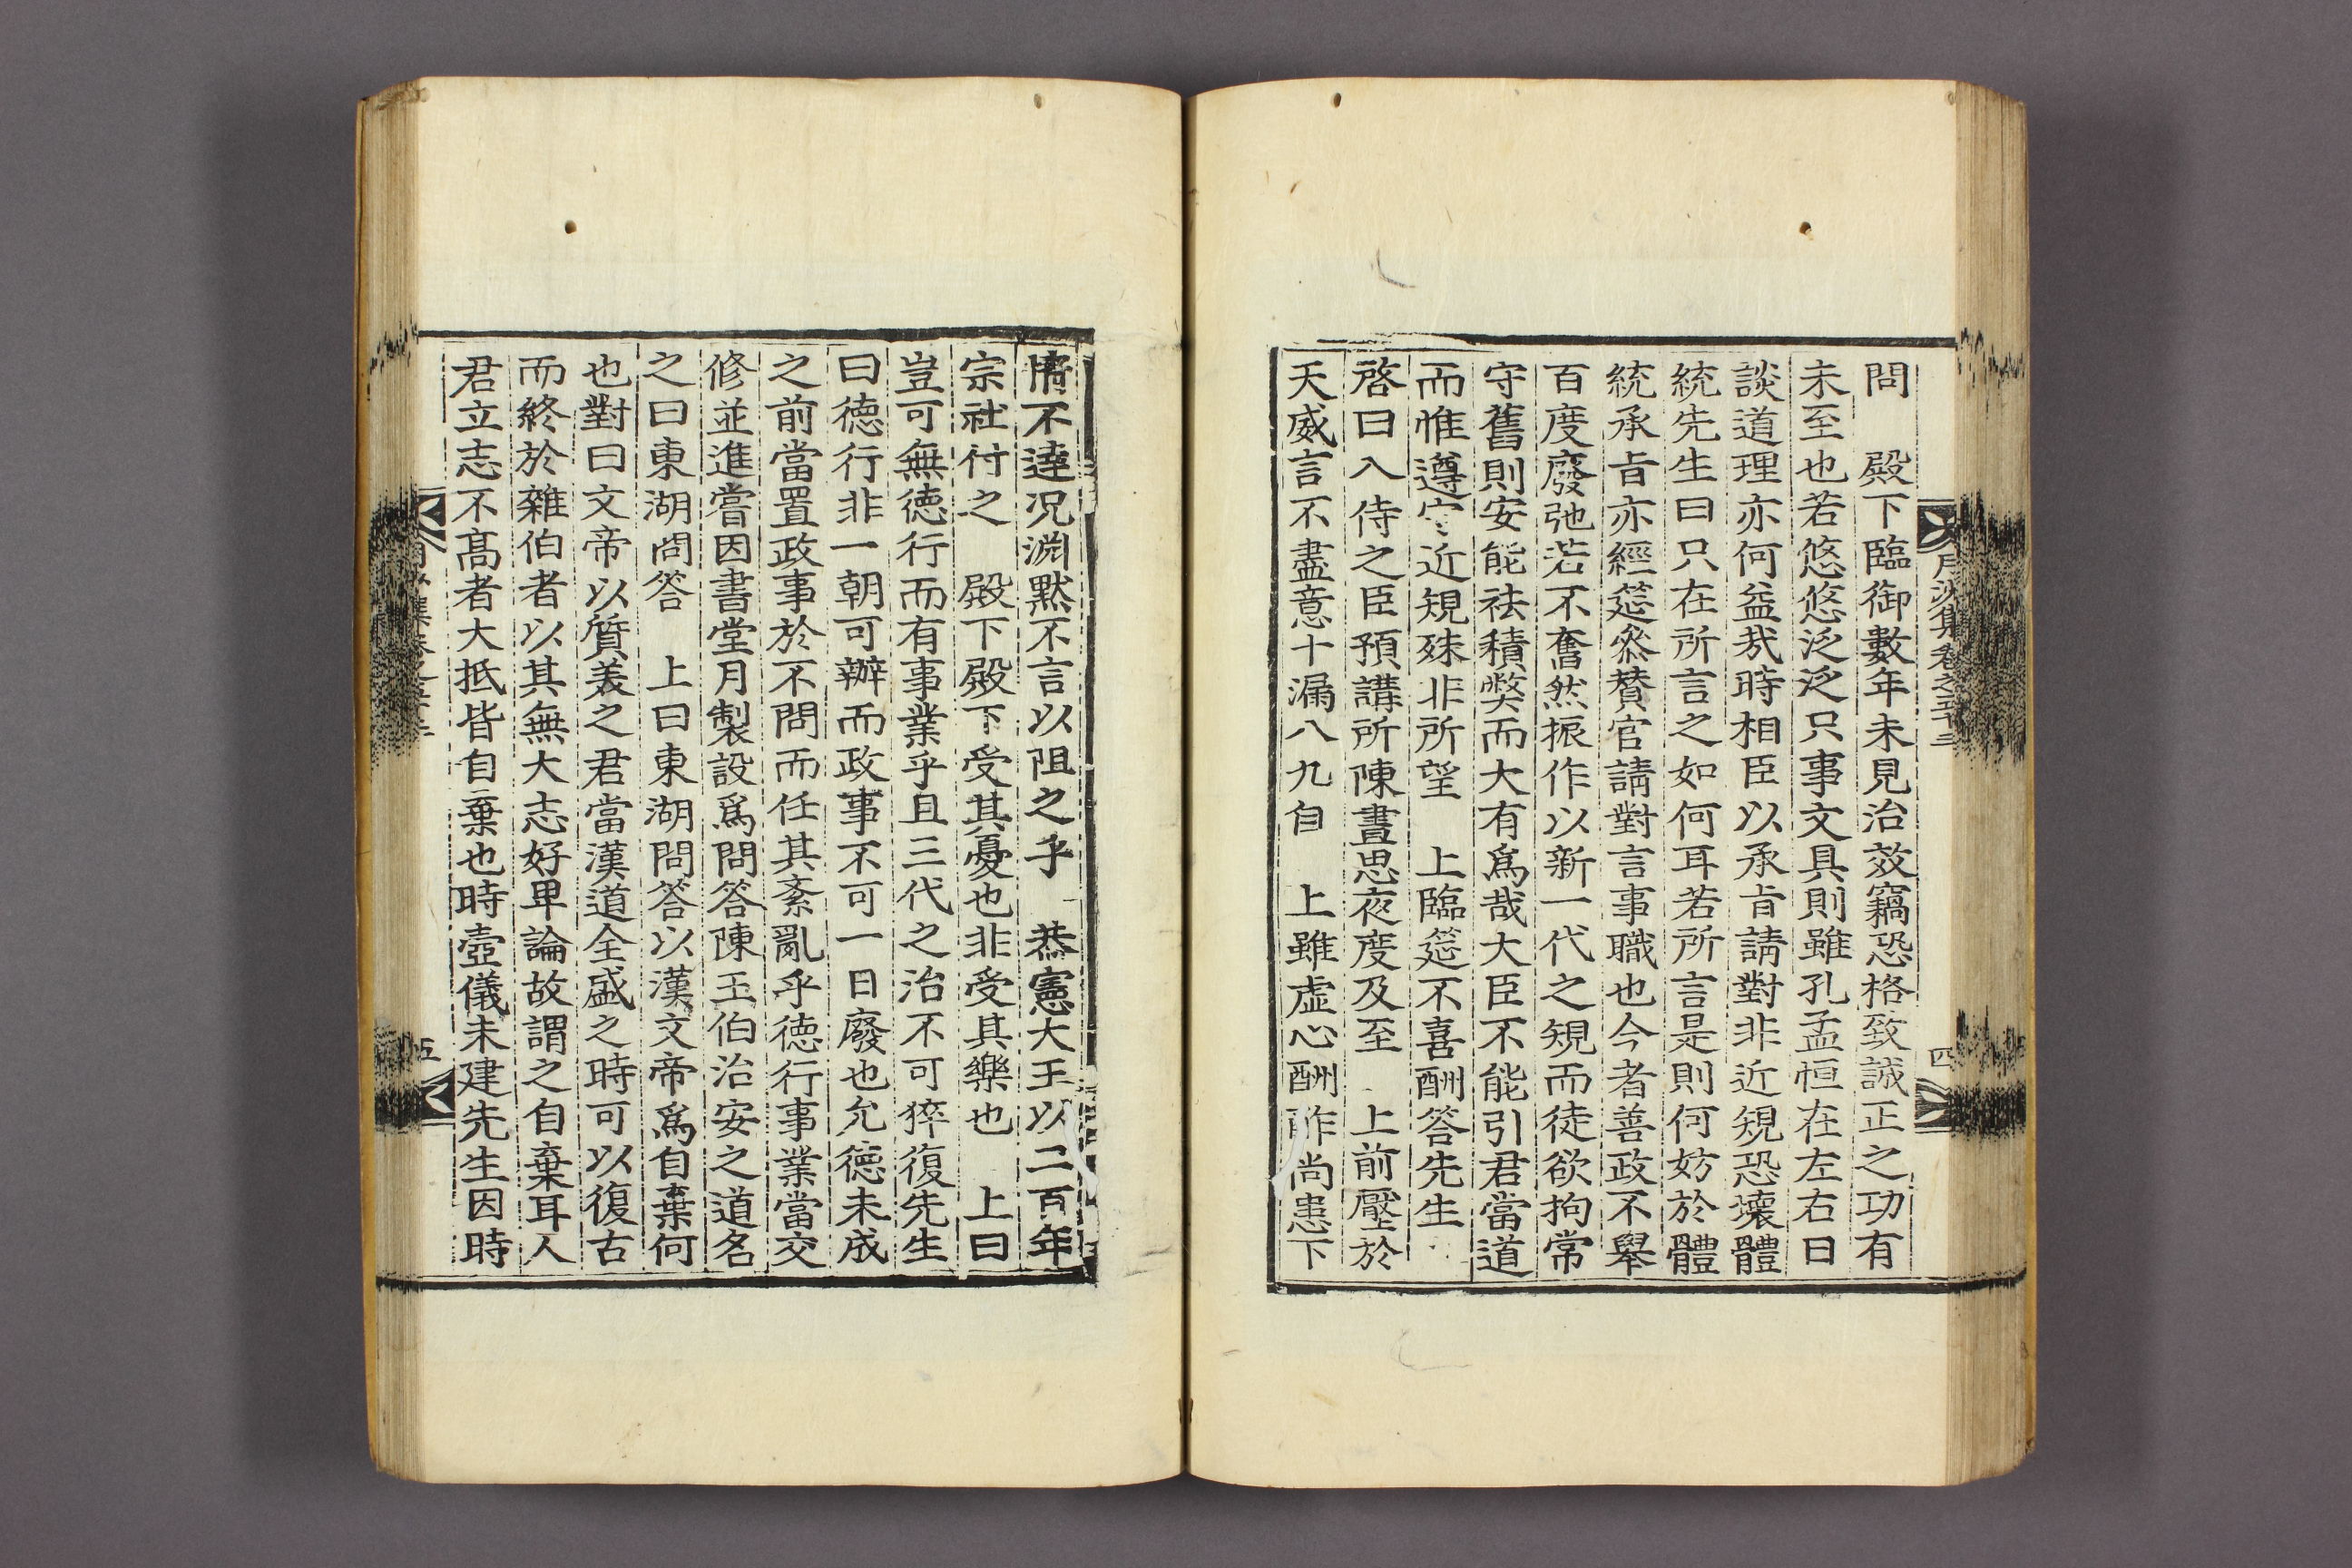 月沙集卷之五十三
四
問　殿下臨御數年未見治效竊恐格致誠正之功有
未至也若悠悠泛泛只事文具則雖孔孟恒在左右日
談道理亦何益哉時相臣以承旨請對非近規恐壞體
統先生曰只在所言之如何耳若所言是則何妨於體
統承旨亦經筵參贊官請對言事職也今者善政不擧
百度廢弛若不奮然振作以新一代之規而徒欲拘常
守舊則安能祛積弊而大有爲哉大臣不能引君當道
而惟遵守近規殊非所望　上臨筵不喜酬答先生
啓曰入侍之臣預講所陳晝思夜度及至　上前壓於
天威言不盡意十漏八九自　上雖虛心酬酢尚患下
情不達況淵默不言以阻之乎　恭憲大王以二百年
宗社付之　殿下殿下受其憂也非受其樂也　上曰
豈可無德行而有事業乎且三代之治不可猝復先生
曰德行非一朝可辦而政事不可一日廢也允德未成
之前當置政事於不問而任其紊亂乎德行事業當交
修並進嘗因書堂月製設爲問答陳王伯治安之道名
之曰東湖問答　上曰東湖問答以漢文帝爲自棄何
也對曰文帝以質美之君當漢道全盛之時可以復古
而終於雜伯者以其無大志好卑論故謂之自棄耳人
君立志不高者大抵皆自棄也時壺儀未建先生因時
五